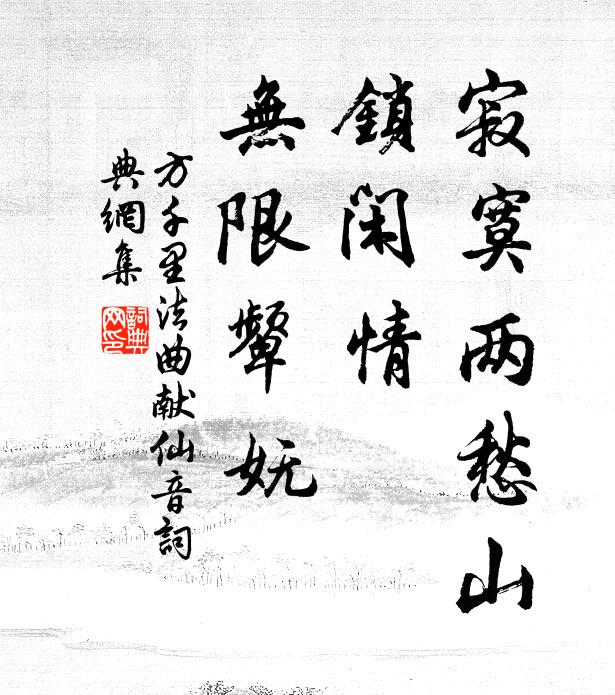 寂寞两愁山
鎖閑情
無限顰妩
方千里法曲献仙音詞
典網集
詞典网印